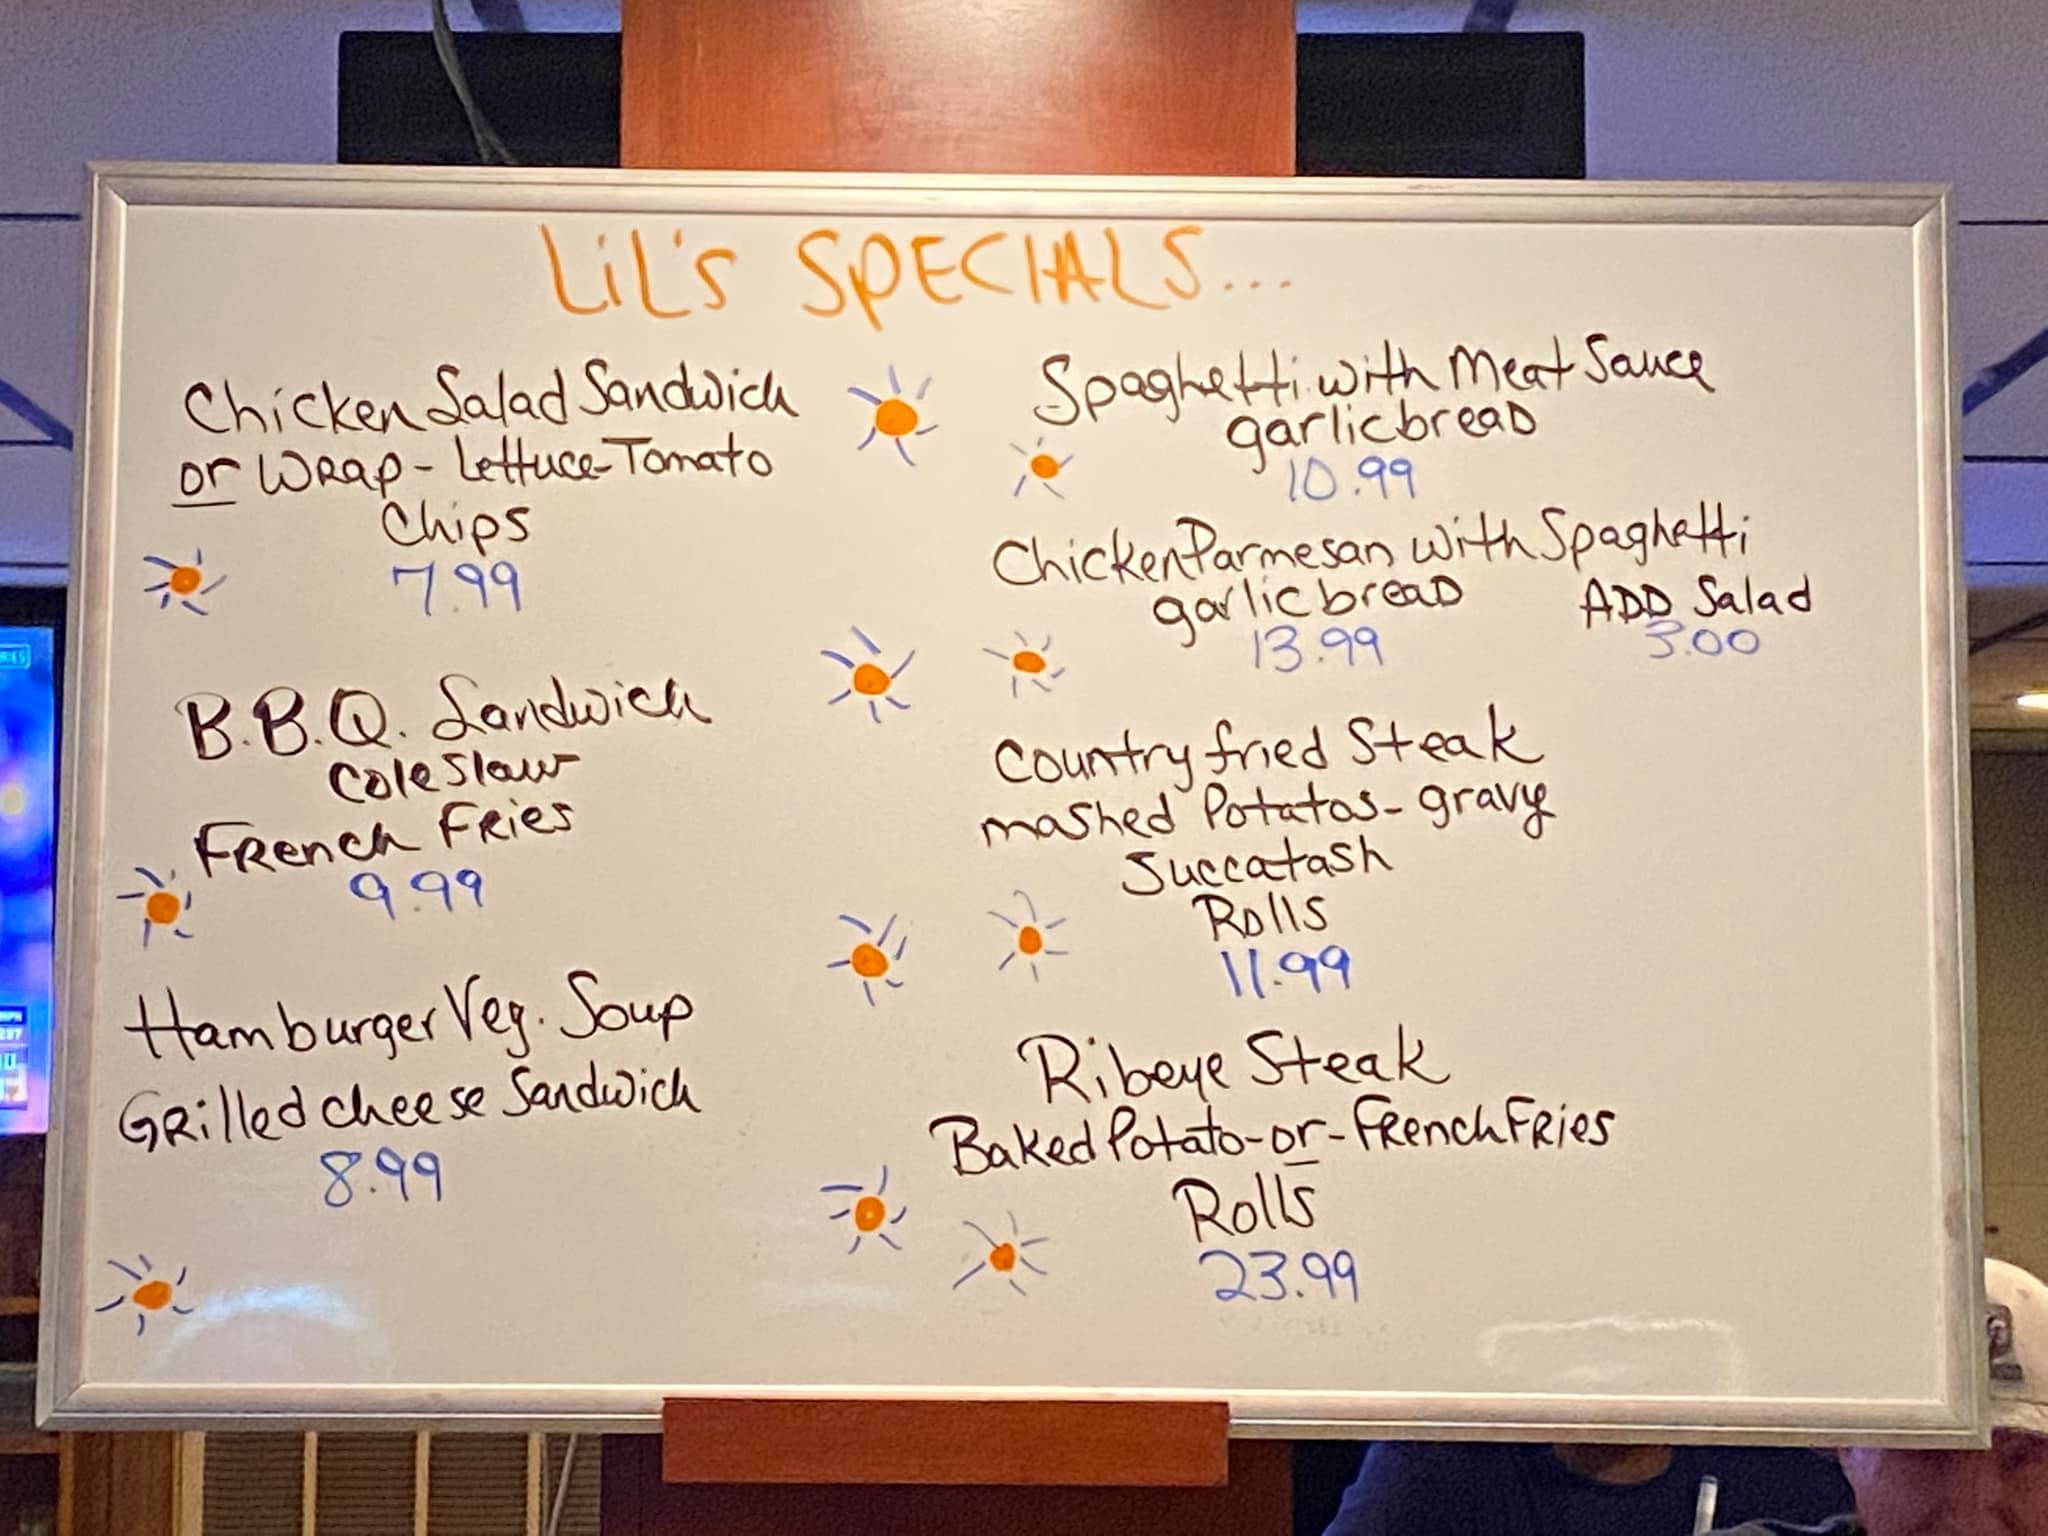 LiL's SPECIALS...
Chicken Salad Sandwich
or Wrap - Lettuce - Tomato
Chips
7.99
B.B.Q. Sandwich
Cole Slaw
French Fries
9.99
Hamburger Veg. Soup
Grilled cheese Sandwich
8.99
Spaghetti with Meat Sauce
garlic bread
10.99
Chicken Parmesan with Spaghetti
garlic bread ADD Salad
13.99 3.00
Country fried Steak
mashed Potatos - gravy
Succatash
Rolls
11.99
Ribeye Steak
Baked Potato - or - French Fries
Rolls
23.99